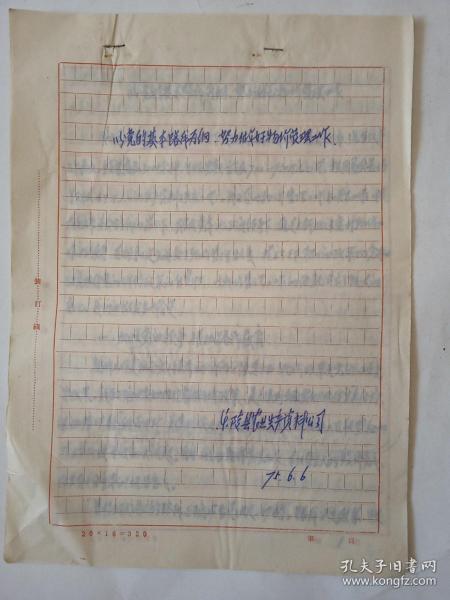 以党的基本路线为纲、努力作好物价管理工作、
乐陵县农业生产资料公司
75.6.6
装订线
20×16=320
第 页
孔夫子旧书网
www.kongfz.com